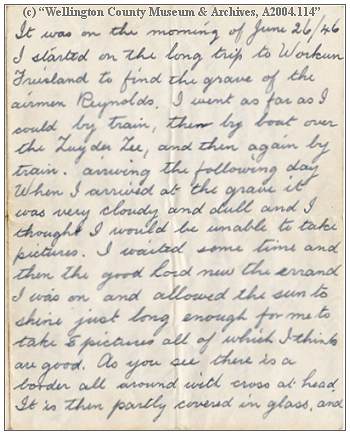 (c) "Wellington County Museum & Archives, A2004.114"
It was on the morning of June 26/46
I started on the long trip to Workum
Friesland to find the grave of the
airmen Reynolds. I went as far as I
could by train, then by boat over
the Zuyder Zee, and then again by
train. arriving the following day
When I arrived at the grave it
was very cloudy and dull and I
thought I would be unable to take
pictures. I waited some time and
then the good lord new the errand
I was on and allowed the sun to
shine just long enough for me to
take 8 pictures all of which I think
are good. As you see there is a
border all around with cross at head
It is then partly covered in glass, and